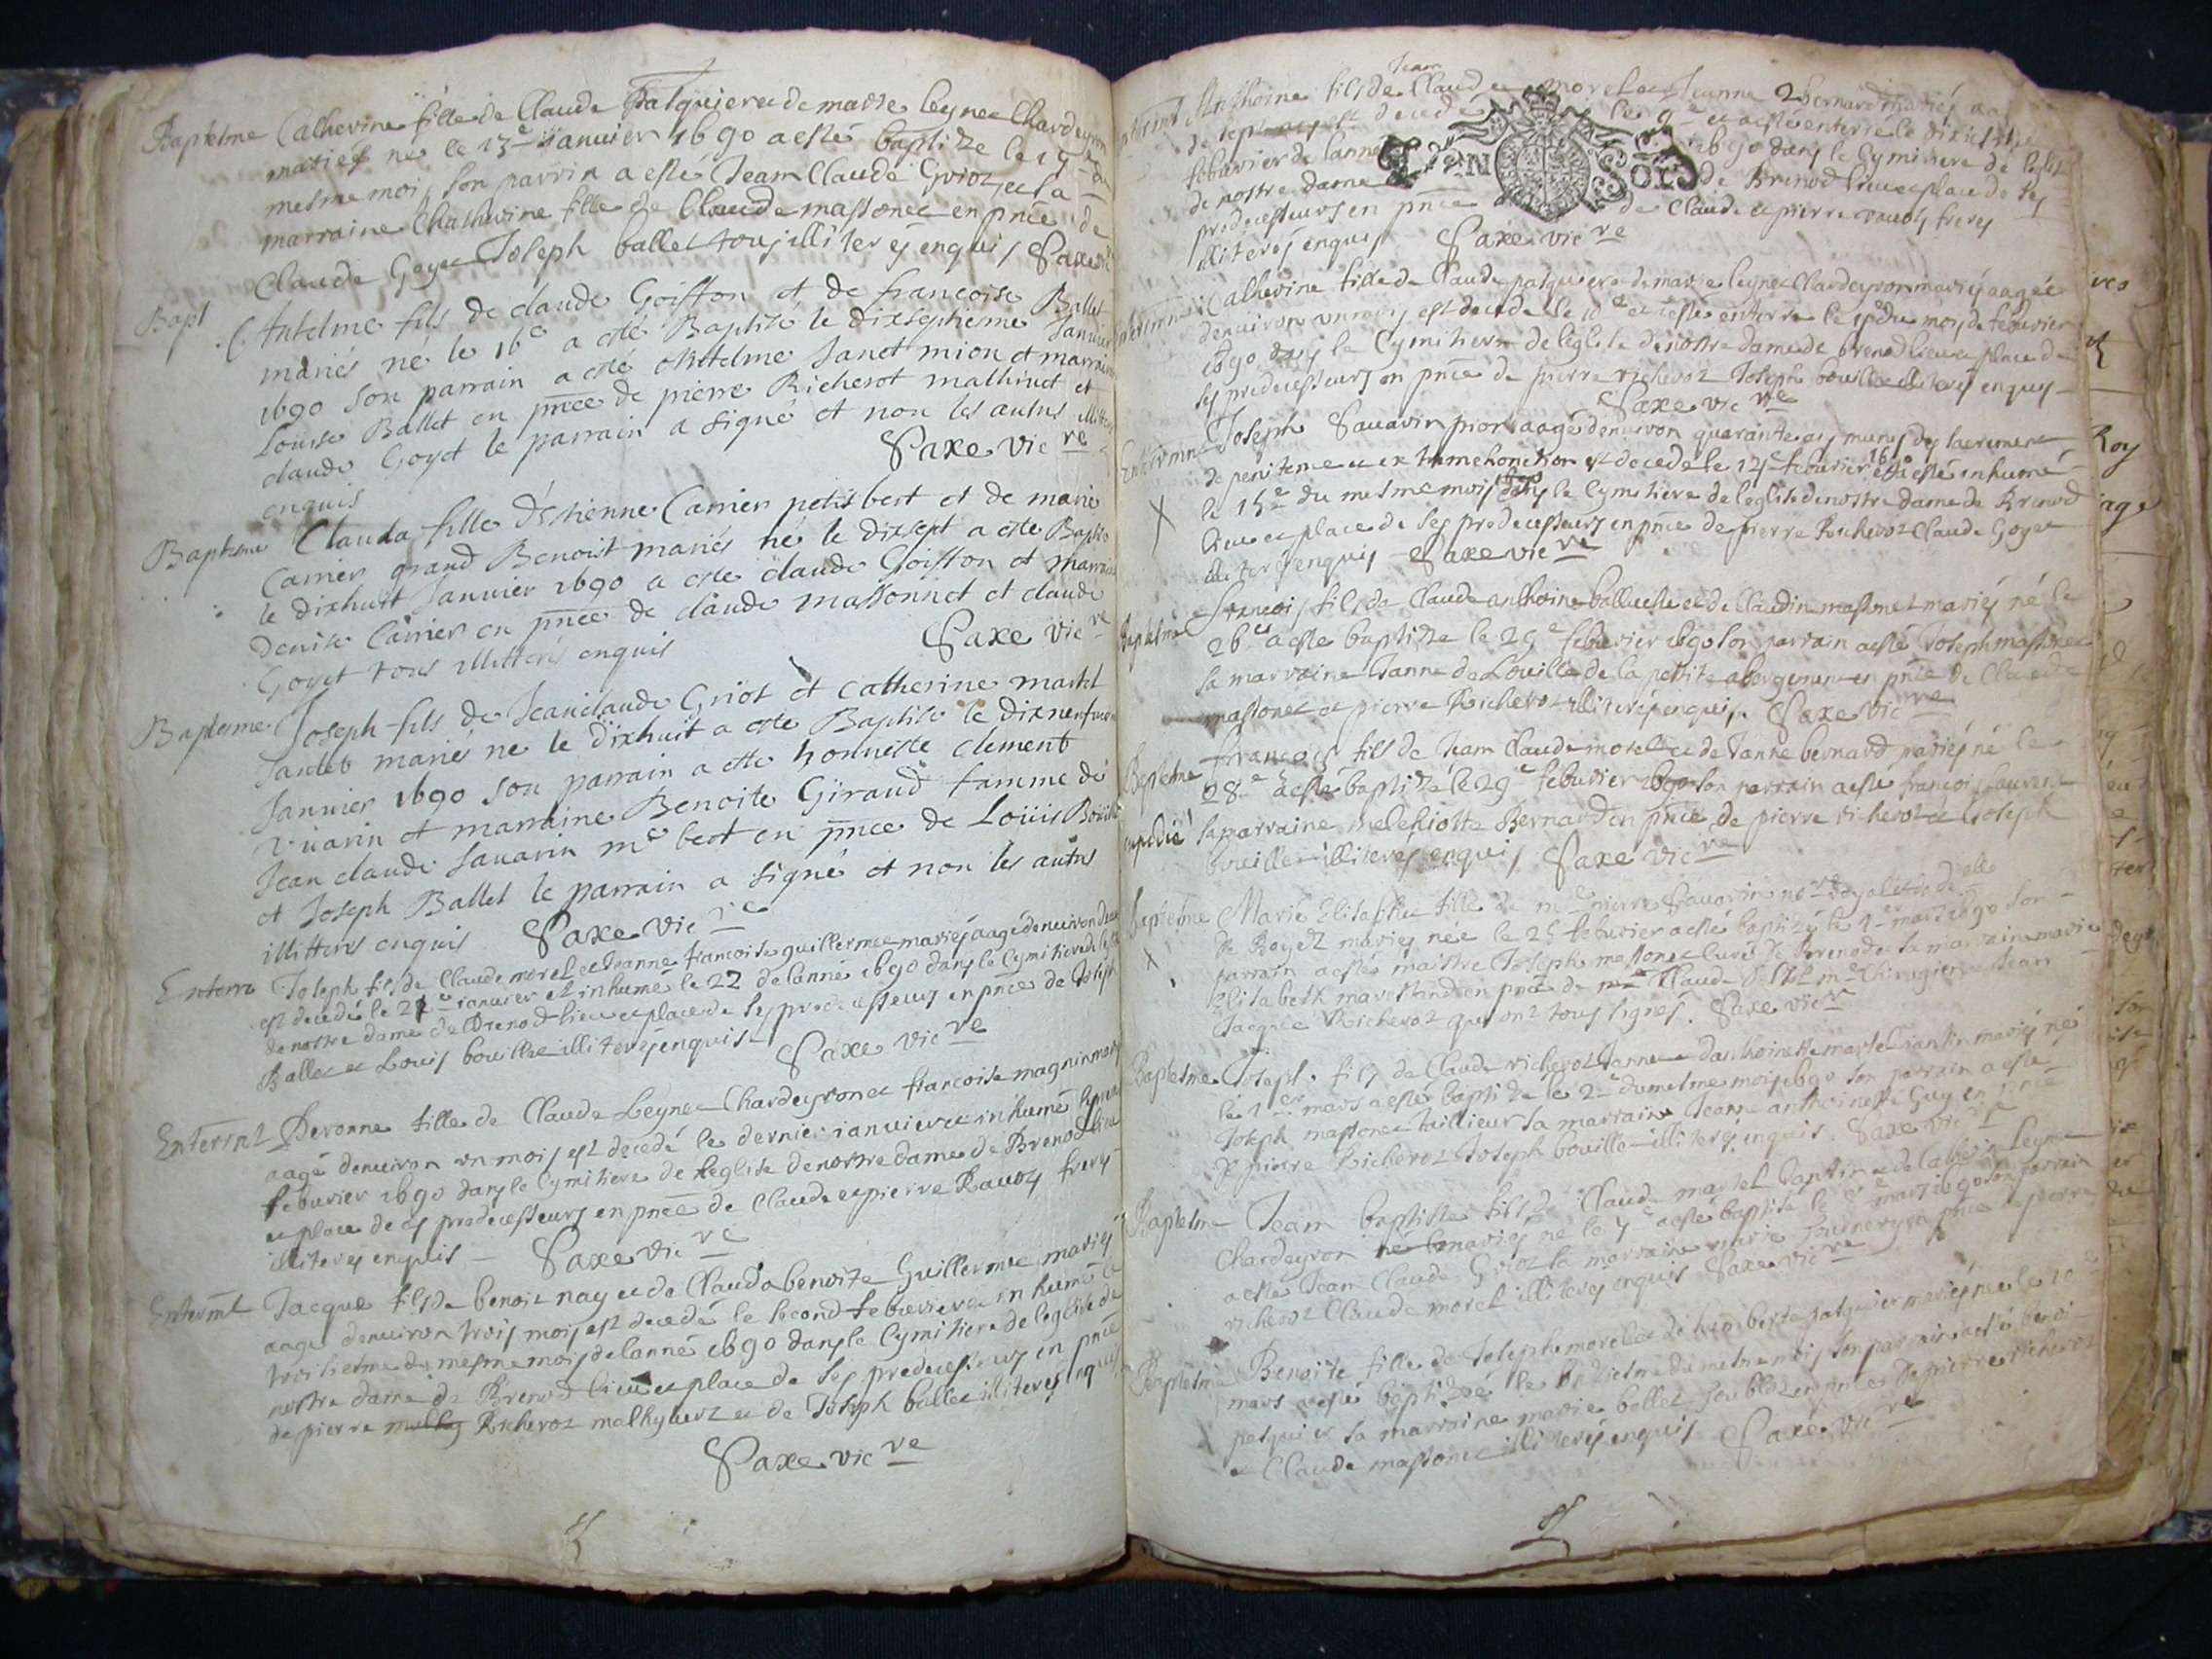 Baptesme Catherine fille de Claude Pasquier et de marie leynet Chardeyron
mariés née le 13e ianuier 1690 a esté baptizée le 19e du
mesme mois son parrin a esté Jean Claude Griot et sa
marraine Chatherine fille de Claude massonet en pnce de
Claude Goyet Joseph ballet tous illiterés enquis Saxe vic
Bapt Antelme fils de claude Goiffon et de francoise Ballet
mariés né le 16e a esté Baptisé le dixseptieme Januier
1690 son parrain a esté Antelme Janet mion et marraine
Louise Ballet en pnce de pierre Richerot mathinet et
claude Goyet le parrain a signé et non les autres
enquis Saxe vicre
Baptesme Clauda fille d'Estienne Carrier petit bert et de marie
Carrier grand Benoist mariés né le dixsept a este Baptisé
le dixhuit Januier 1690 a este claude Goiffon et marraine
Denise Carrier en pnce de claude massonnet et claude
Goyet tous illitterés enquis Saxe vicre
Baptesme Joseph fils de Jeanclaude Griot et catherine martel
Jantet mariés né le dixhuit a este Baptisé le dixneufuiem
Januier 1690 son parrain a este honneste clement
vuarin et marraine Benoite Giraud famme de
Jean claude Sauarin me bert en pnce de Loüis Boüille
et Joseph Ballet le parrain a signé et non les autres
illitterés enquis Saxe vicre
Enterrt Joseph fils de Claude morel et Jeanne francoise guillermet mariés aagé denuiron
est decedé le 21e ianuier et inhumé le 22 de lanné 1690 dans le Cymitiere de
de nostre dame de Brenod lieu et place de ses predecesseurs en pnce de Joseph
Ballet et Louis bouillet illiterés enquis Saxe vicre
Enterrmt Peronne fille de Claude Leynet Chardeyron et francoise magnin mariés
aagé denuiron vn mois est decedé le dernier ianuier et inhumé le
februier 1690 dans le Cymitiere de leglise de nostre dame de Brenod lieu
et place de ses predecesseurs en pnce de Claude et pierre Rauoz freres
illiteres enquis Saxe vicre
Enterrmt Jacque fils de benoit nay et de Clauda benoite Guillermet mariés
aagé denuiron trois mois est decedé le second februier et inhumé le
troisiesme du mesme mois de lanné 1690 dans le Cymitiere de leglise de
nostre dame de Brenod lieu et place de ses predecesseurs en pnce
de pierre Richerot mathynet et de Joseph ballet illiterés enquis
Saxe vicre
Anthoine fils de Jean Claude morel et Jeanne bernard mariés
de sept est decedé le 9e et a esté enterré le dixiesme
februier de lanne 1690 dans le Cymitiere de leglise
de nostre dame de Brenod lieu et place de ses
predecesseurs en pnce de Claude et pierre rauoz freres
illiterés enquis Saxe vicre
Catherine fille de Claude pasquier et de marie leynet Chardeyron mariés aagée
denuiron vn mois est decedé le et a esté enterré le du mois de februier
1690 dans le Cymitiere de leglise de nostre dame de brenod lieu et place de
ses predecesseurs en pnce de pierre richerot Joseph bouille illiterés enquis
Saxe vicre
Joseph Sauarin aagé denuiron quarante ans muny des sacrements
de penitence et extremehonction est decedé le 14e februier 1690 et a esté inhumé
le 15e du mesme mois dans le Cymitiere de leglise de nostre dame de Brenod
lieu et place de ses predecesseurs en pnce de pierre Richerot Claude Goyet
illiterés enquis Saxe vicre
Baptesme Francois fils de Claude anthoine ballet et de Claudine massonet mariés né le
26e a esté baptizé le februier 1690 son parrain a esté Joseph massonet
sa marraine Janne de Louille de la petite abergement en pnce de Claude
massonet et pierre Richerot illiterés enquis. Saxe vicre
Baptesme francois fils de Jean Claude morel et de Janne bernard mariés né le
28e a esté baptizé le 29e februier 1690 son parrain a esté francois sauarin
expedié sa marraine Bernard en pnce de pierre richerot et Joseph
bouille illiterés enquis Saxe vicre
Baptesme Marie Elisabhe fille de me pierre Sauarin nore royal et de
de Boyer mariés née le februier a esté baptizé le 1er mars 1690 son
parrain a esté maistre Joseph massonet Curé de Brenod et sa marraine marie
Elisabeth en pnce de Claude me Chirugien et Jean
Jacque Richerot qui ont tous signés. Saxe vicre
Baptesme Joseph fils de Claude richerot Janne et danthoinette martel Jantin mariés né
le 1er mars a esté baptizé le 2e du mesme mois 1690 son parrain a esté
Joseph massonet taillieur sa marraine Jeanne anthoinette Guy en pnce
de pierre Richerot Joseph bouille illiterés enquis. Saxe vicre
Baptesme Jean baptiste fils de Claude martel Jantin et de Leynet
Chardeyron mariés né le a esté baptisé le mars 1690 son parrain
a esté Jean Claude Griot sa marraine marie en pnce de pierre
richerot Claude morel illiterés enquis Saxe vicre
Baptesme Benoite fille de Joseph morel et de humberte pasquier mariés née le 10
mars a esté baptizée le du mesme mois son parrain a esté benoit
pasquier sa marraine marie ballet en pnce de pierre richerot
et Claude massonet illiterés enquis Saxe vicre